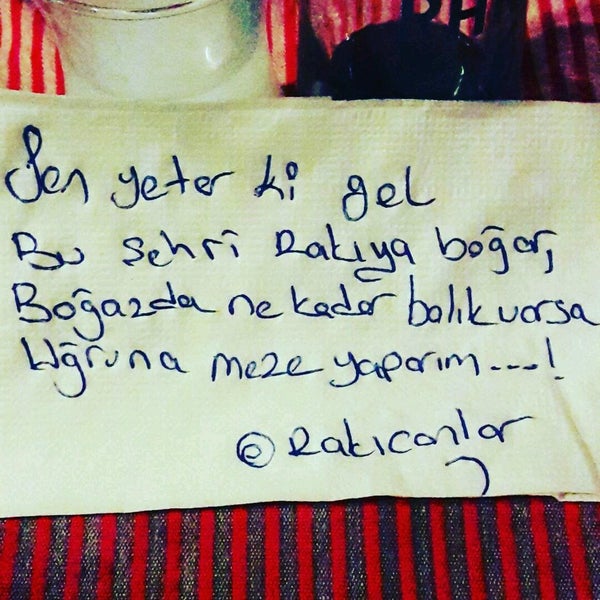 RH
Sen yeter ki gel
Bu şehri Rakıya boğar,
Boğazda ne kadar balık varsa
Uğruna meze yaparım....!
@Rakıcanlar